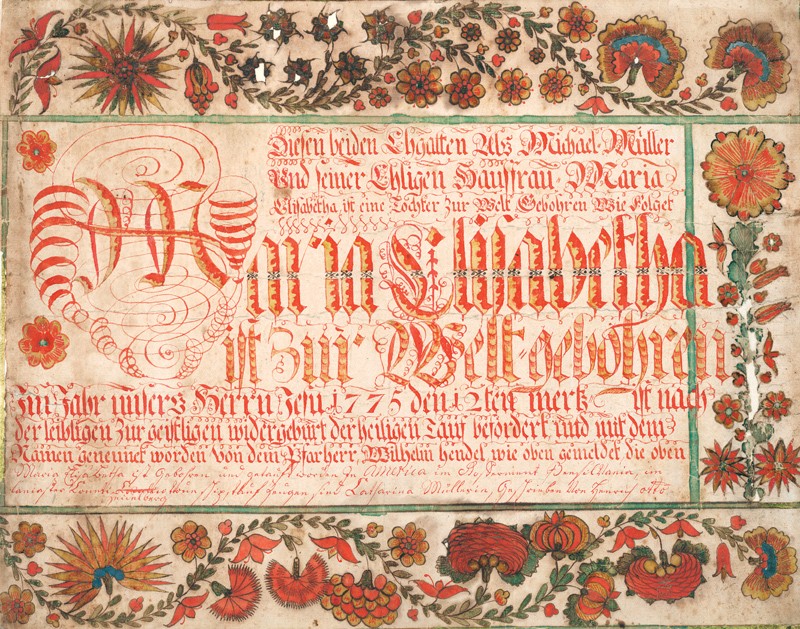 Diesen beiden Ehgatten Als Michael Müller
Und seiner Ehligen Haussrau Maria
Elisabetha ist eine Tochter Zur Welt Gebohren Wie Folget
Maria Elisabetha
ist Zur Welt gebohren
Im Jahr unsers Herrn Jesu 1775 den 12ten mertz ist nach
der leibligen Zur geistligen widergeburt der heiligen Tauf befördert und mit dem
Namen genennet worden Von dem Pfarherr Wilhelm hendel wie oben gemeldet die oben
Maria Elisabetha ist Gebohren und Getauft worden In America im
Zeugen sind Catharina Müllerin Geschrieben Von Henrich Otto